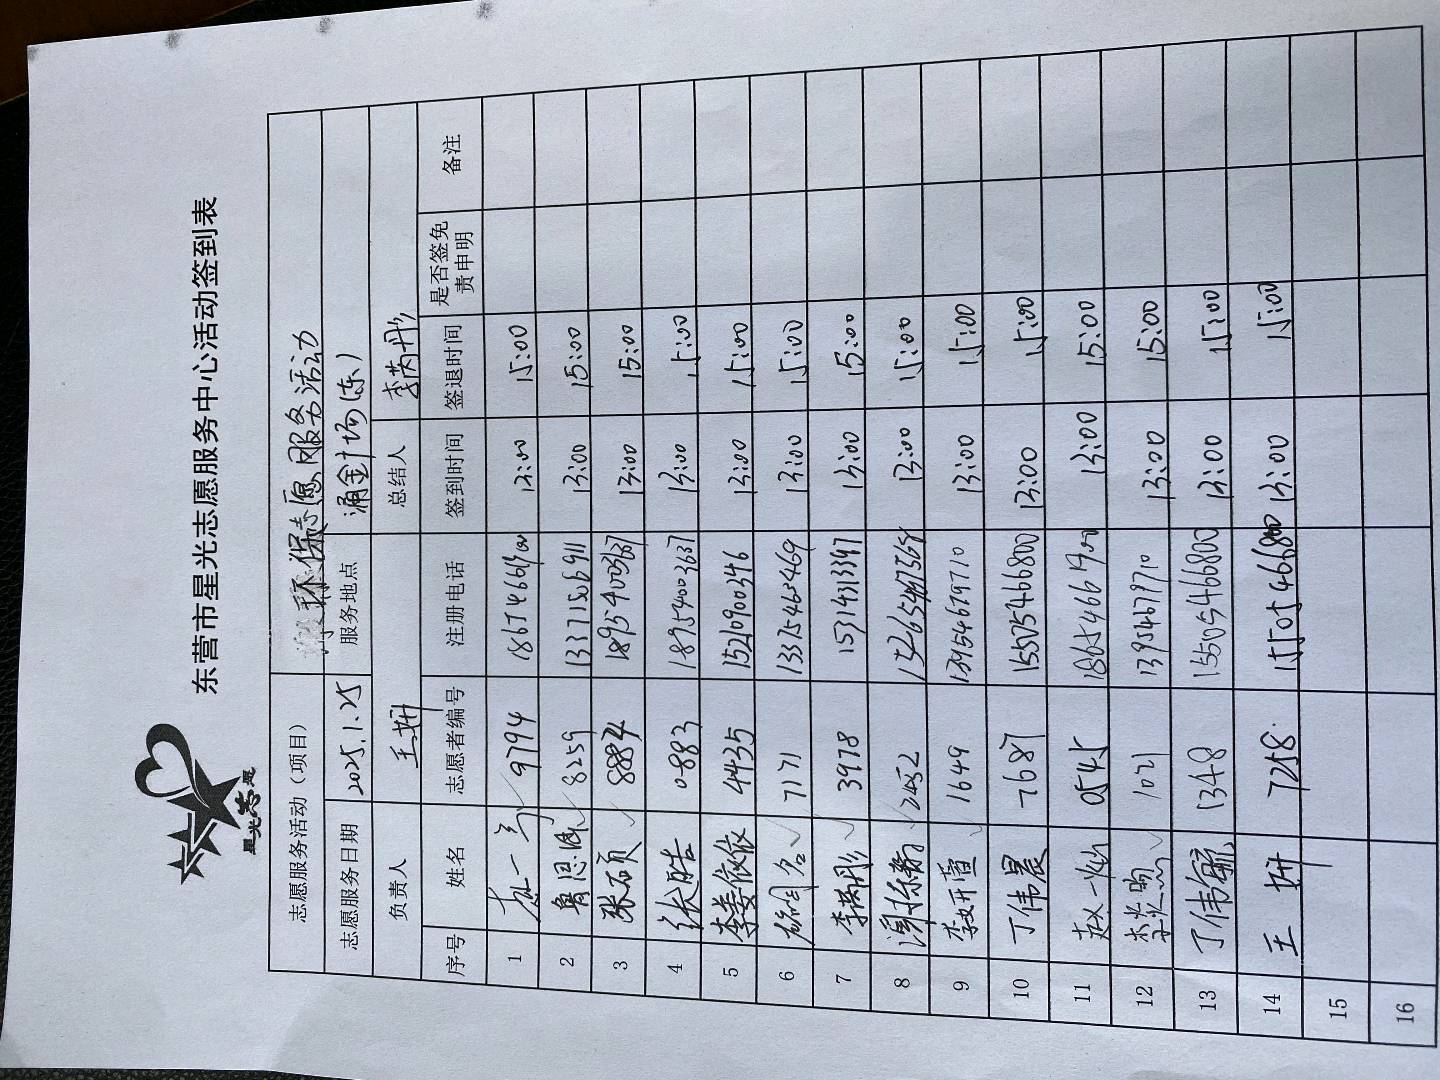 星光志愿
东营市星光志愿服务中心活动签到表
志愿服务活动（项目） 环保志愿服务活动
志愿服务日期 2025.1.25 服务地点 涌金广场(东)
负责人 王妍 总结人 李芮彤
序号 姓名 志愿者编号 注册电话 签到时间 签退时间 是否签免责申明 备注
1 9794 13:00 15:00
2 鲁思源 8259 13371506911 13:00 15:00
3 张硕 8884 18954003637 13:00 15:00
4 张皓 0883 18954003637 13:00 15:00
5 李姜依依 4435 15210900346 13:00 15:00
6 7171 13375463469 13:00 15:00
7 李芮彤 3978 15314313397 13:00 15:00
8 2452 13:00 15:00
9 1649 13954679710 13:00 15:00
10 丁伟晨 7687 15505466800 13:00 15:00
11 赵一灿 0545 13:00 15:00
12 1021 13954679710 13:00 15:00
13 丁伟毓 1348 15505466800 13:00 15:00
14 王妍 7258 15505466800 13:00 15:00
15
16